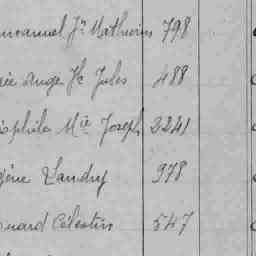 Emmanuel Jn Mathurin 798
Ange Fc Jules 488
Théophile Mie Joseph 3241
Eugène Landry 978
Édouard Célestin 547